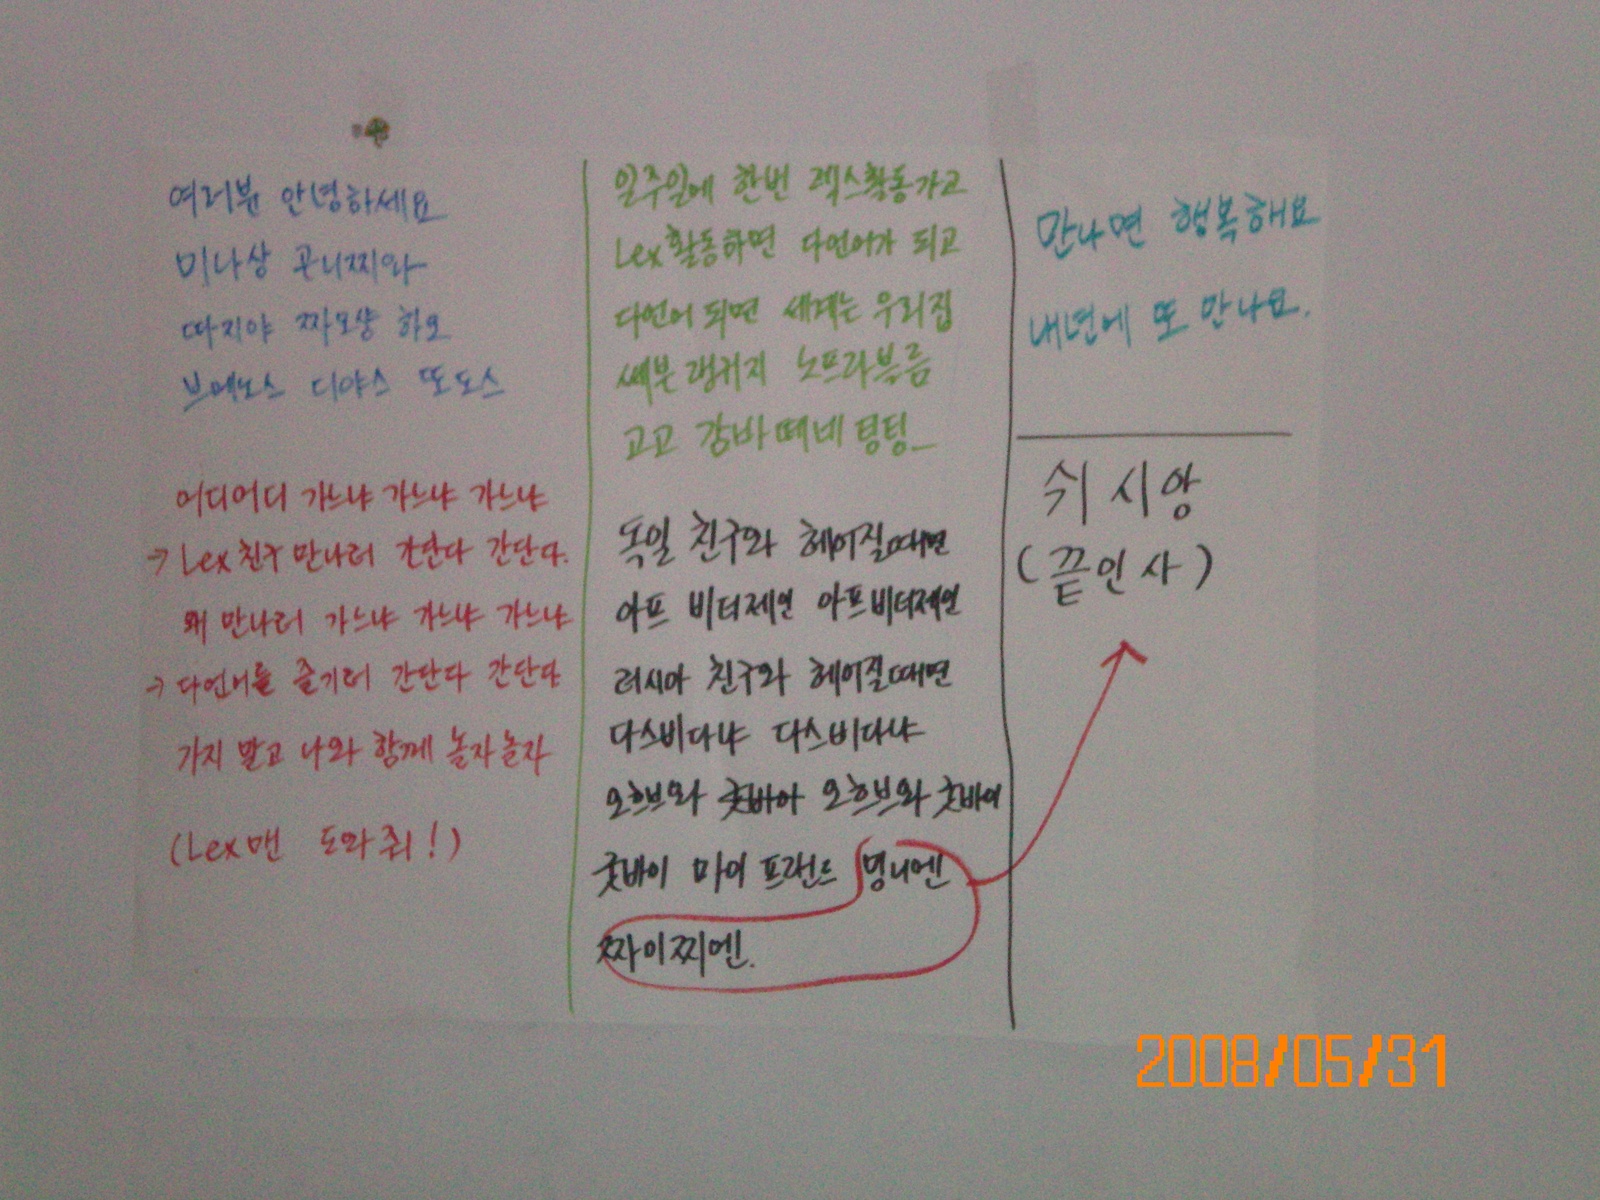 여러분 안녕하세요
미나상 곤니찌와
따지야 짜오샹 하오
브에노스 디야스 또도스
어디어디 가느냐 가느냐 가느냐
→ Lex친구 만나러 간단다 간단다.
왜 만나러 가느냐 가느냐 가느냐
→ 다언어를 즐기러 간단다 간단다
가지 말고 나와 함께 놀자 놀자
(Lex맨 도와줘!)
일주일에 한번 렉스활동가고
Lex활동하면 다언어가 되고
다언어 되면 세계는 우리집
쎄분 랭귀지 노프라브름
고고 감바떼네 팅팅
독일 친구와 헤어질때면
아프 비더제엔 아프비더제엔
러시아 친구와 헤어질때면
다스비다냐 다스비다냐
오흐브와 굿바이 오흐브와 굿바이
굿바이 마이 프랜드 밍니엔
짜이찌엔.
만나면 행복해요
내년에 또 만나요.
쉬 시앙
(끝인사)
2008/05/31